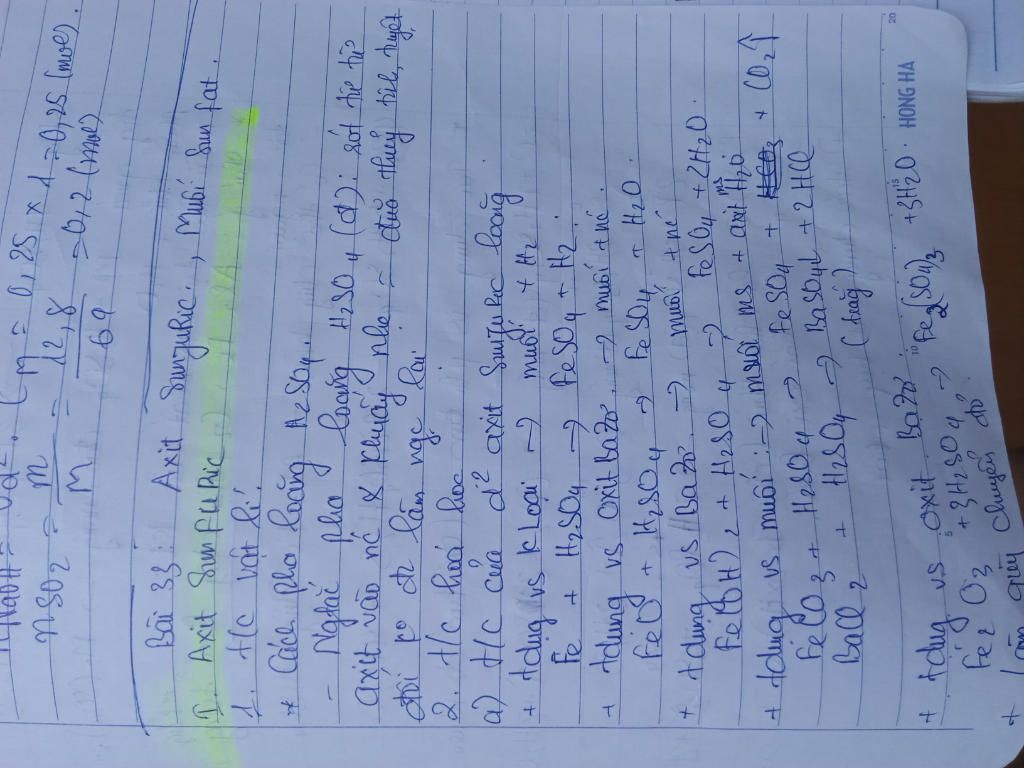 nNaOH = Vd². CM = 0,25 x 1 = 0,25 (mol)
nSO2 = m/M = 12,8/64 = 0,2 (mol)
Bài 33: Axit Sunfuric, Muối Sunfat.
I. Axit Sunfuric
1. T/c vật lí:
* Cách pha loãng H2SO4.
- Ngtắc pha loãng H2SO4 (đ): rót từ từ
axit vào nc & khuấy nhẹ = đũa thủy tinh,
đối ko đc làm ngc lại
2. T/c hoá học
a) T/c của d² axit Sunfuric loãng
+ tdụng vs kLoại → muối + H2
Fe + H2SO4 → FeSO4 + H2.
+ tdụng vs oxit Bazơ. → muối + nc.
FeO + H2SO4 → FeSO4 + H2O
+ tdụng vs Bazơ. → muối + nc
Fe(OH)2 + H2SO4 → FeSO4 + 2H2O.
+ tdụng vs muối: → muối ms + axit ms
FeCO3 + H2SO4 → FeSO4 + H2O + CO2↑
BaCl2 + H2SO4 → BaSO4↓ + 2HCl
(trắng)
+ tdụng vs oxit Bazơ
Fe2O3 + 3H2SO4 → Fe2(SO4)3 + 3H2O.
+ Làm quỳ chuyển đỏ.
5 10 15 20
HONG HA